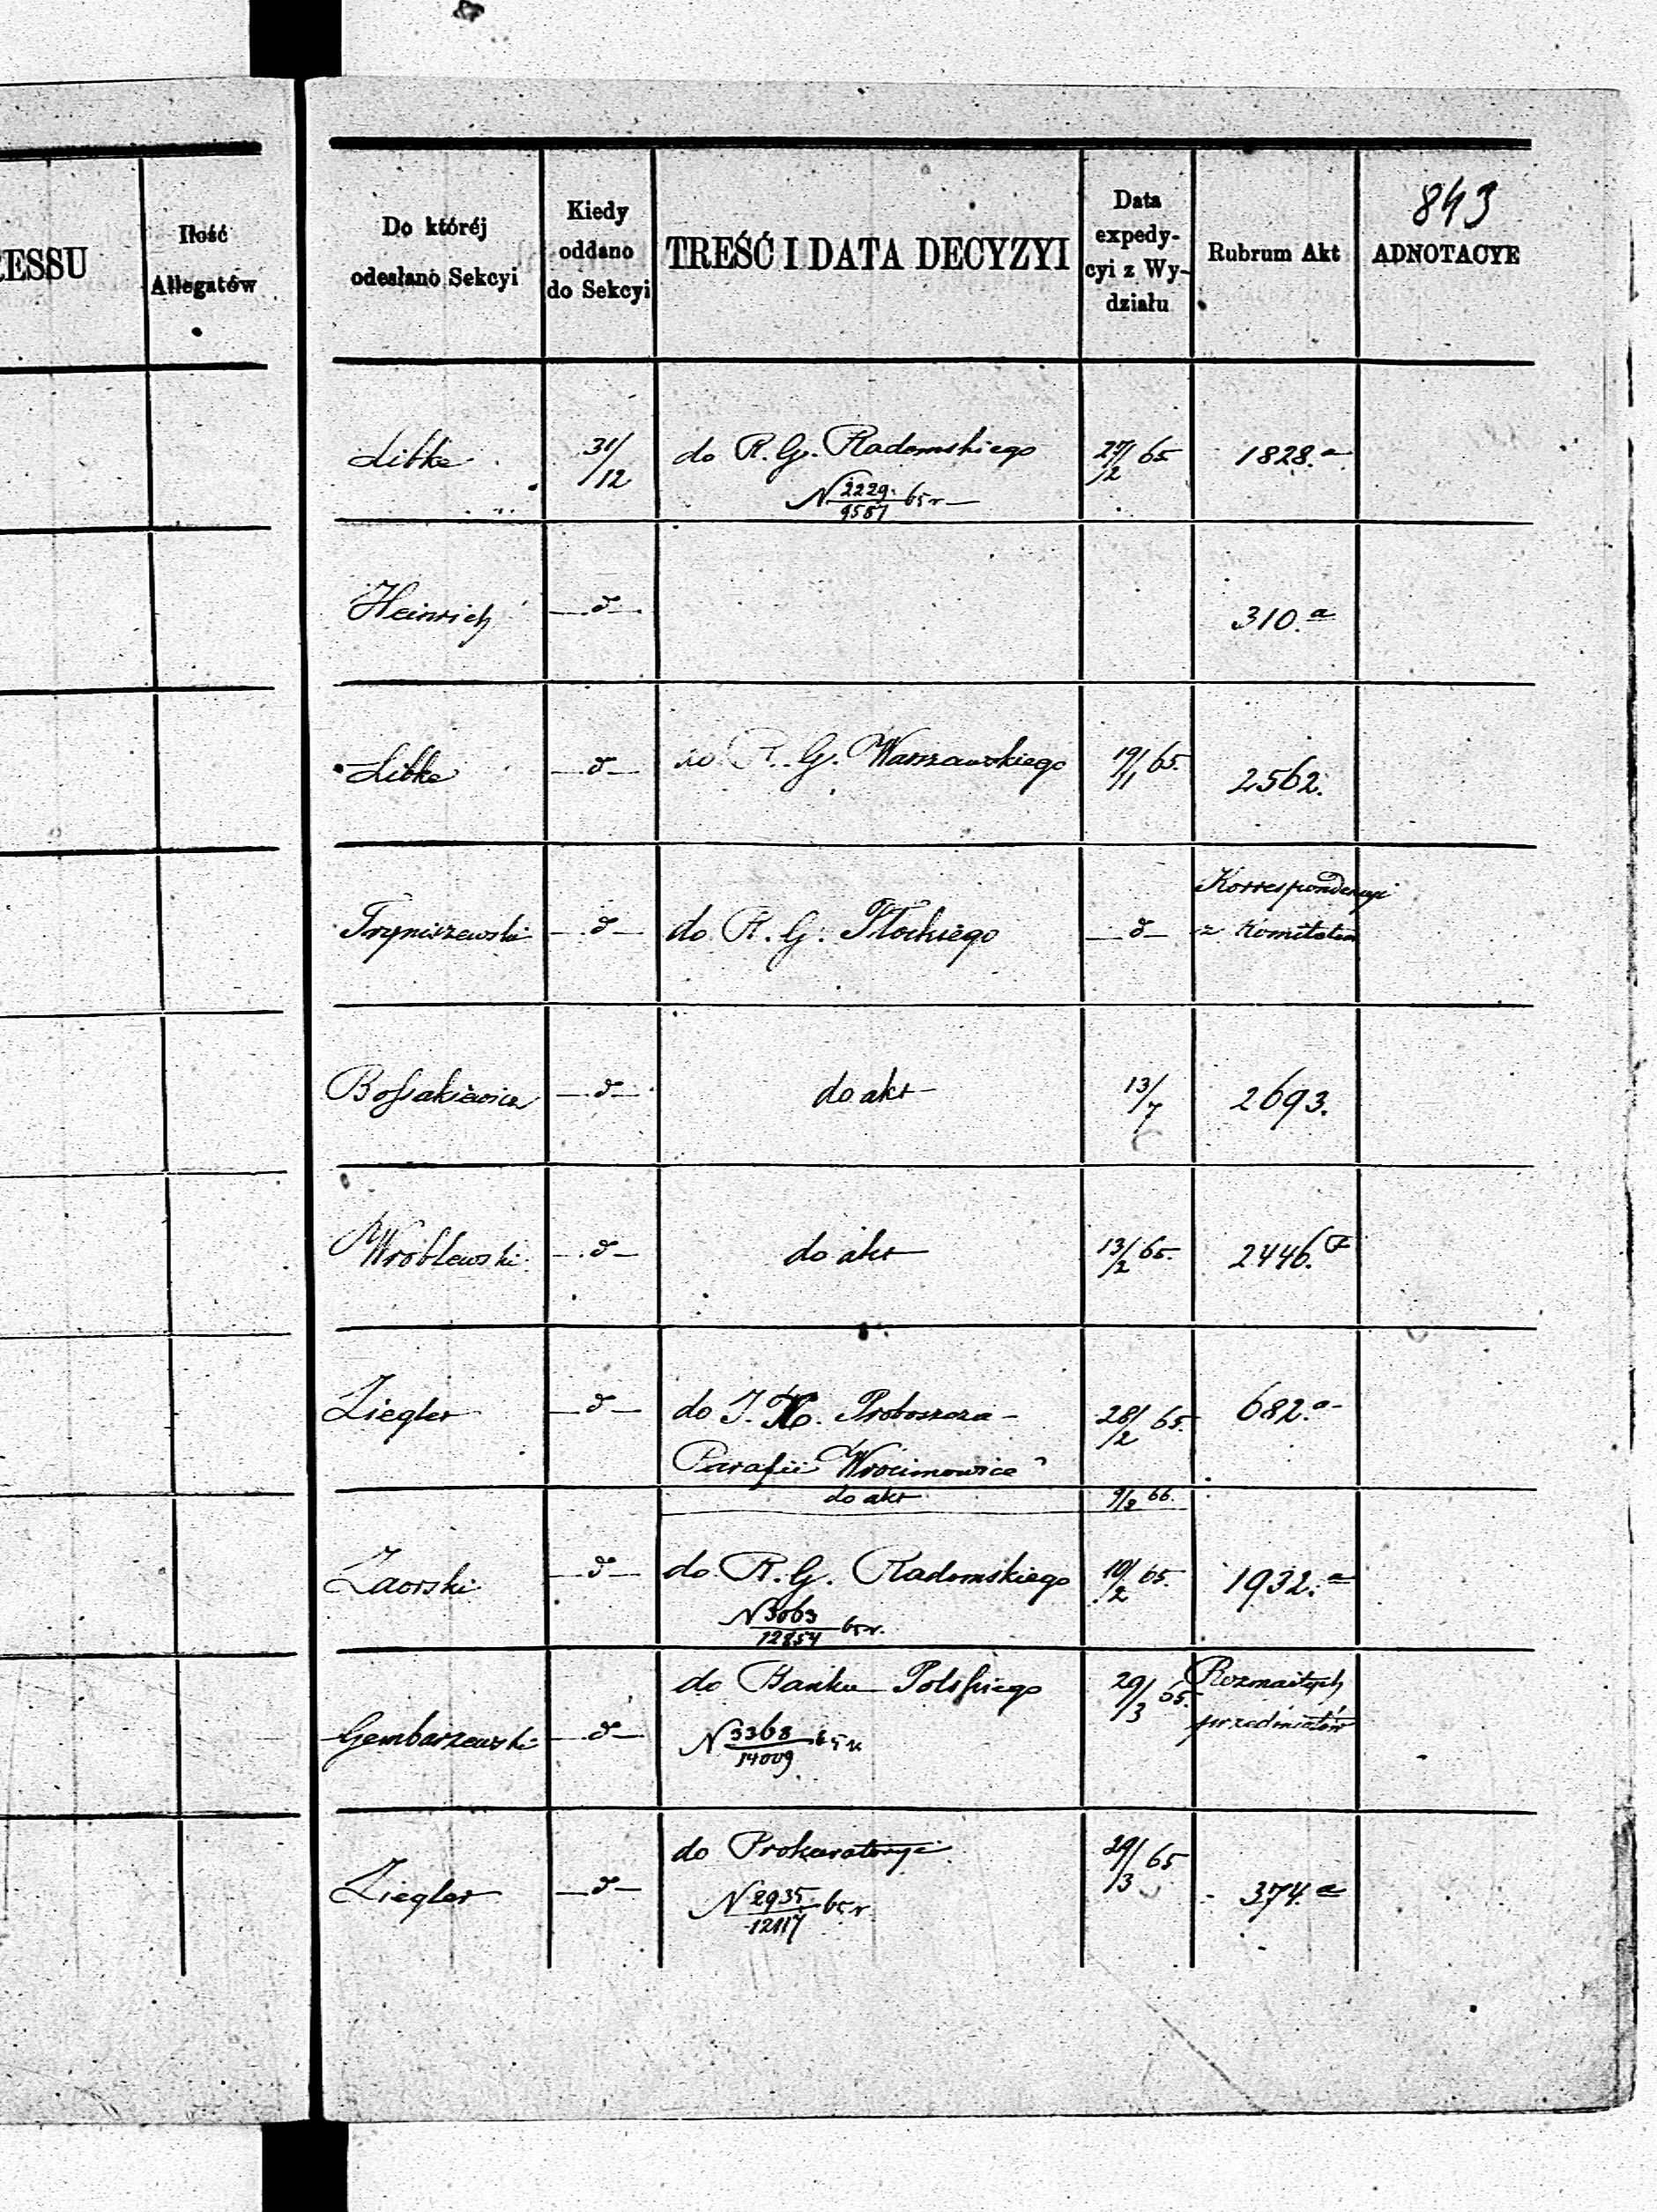 ESSU
Ilość
Allegatów
Do któréj
odesłano Sekcyi
Kiedy
oddano
do Sekcyi
TREŚĆ I DATA DECYZYI
Data
expedy-
cyi z Wy-
działu
Rubrum Akt
843
ADNOTACYE
Libke 31/12 do R. G. Radomskiego 27/2 65 1828.a
N 2229/9587 65 r
Heinrich d 310.a
Libke d do R. G. Warszawskiego 19/1 65. 2562.
Korrespondencyi
Tryniszewski d do R. G. Płockiego d z Komitetem
Bossakiewicz d do akt 13/7 2693.
Wróblewski d do akt 13/2 65. 2446.
Ziegler d do J. X. Proboszcza 28/2 65. 682.a
Parafii Wrocimowice
do akt 9/2 66.
Zaorski d do R. G. Radomskiego 10/2 65. 1932.a
N 3063/12854 65 r.
do Banku Polskiego 29/3 65. Rozmaitych
Gembarzewski d N 3368/14009 65 r przedmiotów
do Prokuratoryi 29/3 65
Ziegler d N 2935/12117 65 r. 374.a